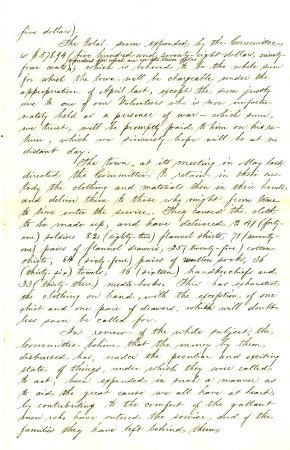 five dollars)
The total sum expended by the Committee
is $578.94 (five hundred and seventy-eight dollars, ninety-
four cents), which is believed to be the whole sum
for which the town will be chargeable under the
appropriation of April last, except the sum justly
due to one of our Volunteers who is now unfortu-
nately held as a prisoner of war - which sum,
we trust, will be promptly paid to him on his re-
turn, which we sincerely hope will be at no
distant day.
The town, at its meeting in May last
directed the Committee to retain in their cus-
tody the clothing and materials then in their hands,
and deliver them to those who might from time
to time enter the service. They caused the cloth
to be made up, and have delivered to 41 (forty-
one) soldiers 82 (eighty-two) flannel shirts, 71 (seventy-
one) pairs of flannel drawers, 25 (twenty-five) cotton
shirts, 64 (sixty-four) pairs of woollen socks, 36
(thirty-six) towels, 16 (sixteen) handkerchiefs and
33 (thirty-three) needle-books. This has exhausted
the clothing on hand, with the exception of one
shirt and one pair of drawers, which will doubt-
less soon be called for.
In review of the whole subject, the
Committee believe that the money by them
disbursed has, under the peculiar and exciting
state of things, under which they were called
to act, been expended in such a manner as
to aid the great cause we all have at heart,
by contributing to the comfort of the gallant
men who have entered the service, and of the
families they have left behind them.